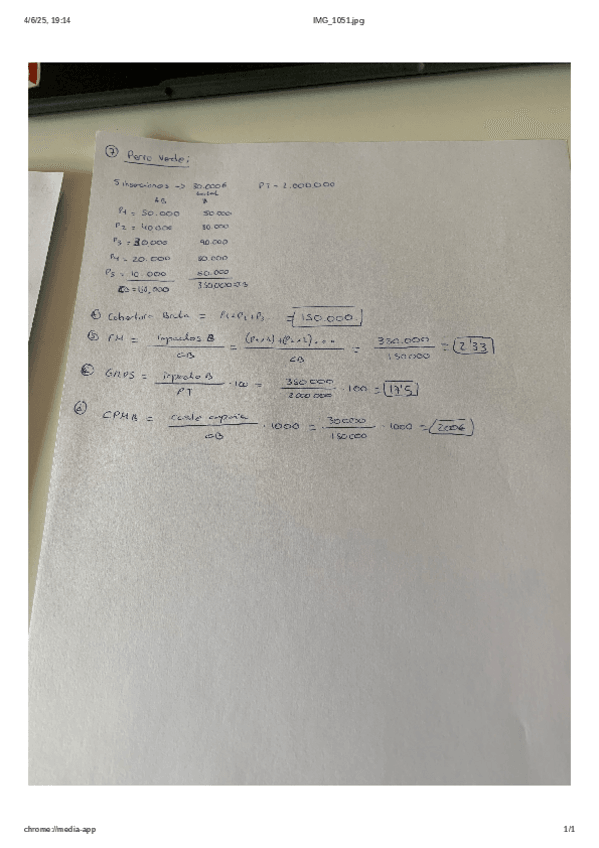 4/6/25, 19:14 IMG_1051.jpg
7 Perro Verde:
5 inserciones -> 30.000€ PT = 2.000.000
P1 = 50.000 50.000
P2 = 40.000 80.000
P3 = 30.000 90.000
P4 = 20.000 80.000
P5 = 10.000 50.000
CB = 150.000 350.000
a) Cobertura Bruta = P1+P2+P3.. = 150.000
b) FM = impactos B / CB = (P1×1)+(P2×2)+... / CB = 350.000 / 150.000 = 2'33
c) GRPS = impacto B / PT · 100 = 350.000 / 2.000.000 · 100 = 17'5
d) CPMB = coste / CB · 1000 = 30000 / 150000 · 1000 = 200€
chrome://media-app 1/1